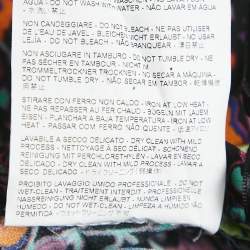 AQUA - DO NOT WASH IN WATER - NE PAS LAVER À
NICHT WASCHEN - NO LAVAR EN AGUA
- 水洗い不可
NON CANDEGGIARE - DO NOT BLEACH - NE PAS UTILISER
DE L'EAU DE JAVEL - BLEICHEN NICHT ERLAUBT - NO USAR
LEJIA - DO NOT BLEACH - NÃO BRANQUEAR -
NON ASCIUGARE IN TAMBURO - DO NOT TUMBLE DRY - NE
PAS SÉCHER EN TAMBOUR - NICHT IM
TROMMELTROCKNER TROCKNEN - NO SECAR A MÁQUINA
- DO NOT TUMBLE DRY - NÃO SECAR EM TAMBOR -
STIRARE CON FERRO NON CALDO - IRON AT LOW HEAT -
NE PAS REPASSER AU FER CHAUD - BÜGELN MIT LAUEM
EISEN - PLANCHAR A TEMPERATURA BAJA - IRON AT LOW
HEAT - PASSAR COM FERRO NÃO QUENTE -
LAVABILE A SECCO DELICATO - DRY CLEAN WITH MILD
PROCESS - NETTOYAGE À SEC DÉLICAT - SCHONENDE
REINIGUNG MIT PERCHLORETHYLEN - LAVADO EN SECO
DELICADO - DRY CLEAN WITH MILD PROCESS - LAVAR A
SECO DELICADO -
PROIBITO LAVAGGIO UMIDO PROFESSIONALE - DO NOT
WET-CLEAN - TRAITEMENT INTERDIT - PROFESSIONELLE
NASSREINIGUNG NICHT ERLAUBT - NUNCA LIMPIO EN
HUMEDO - DO NOT WET-CLEAN - LIMPEZA A HUMIDO NÃO
PERMITIDA - ウエットクリーニング